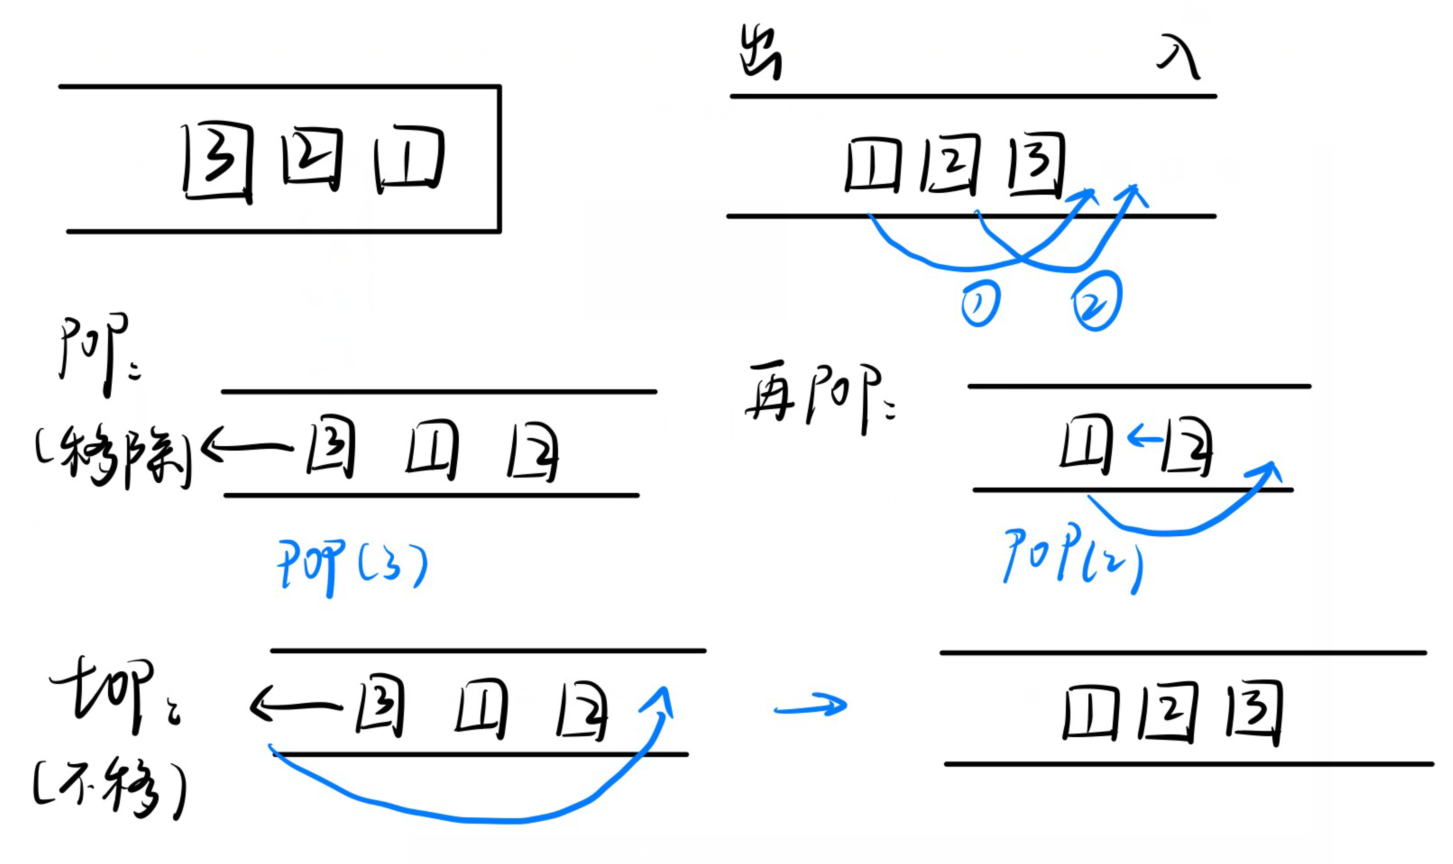 3 2 1
出 入
1 2 3
① ②
POP:
(移除)
3 1 2
POP(3)
再POP:
1 2
POP(2)
top:
(不移)
3 1 2
1 2 3